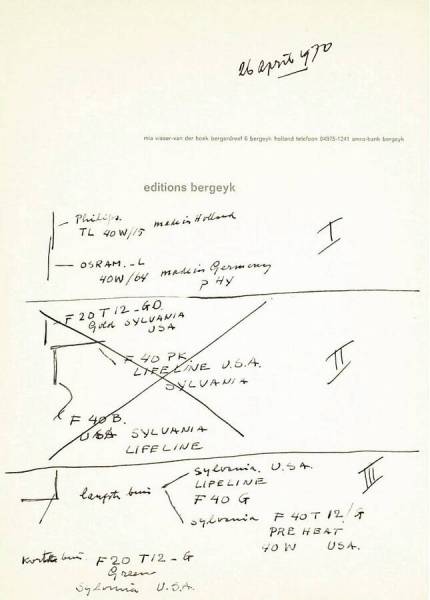 26 april 1970
mia visser-van der hoek bergerdreef 6 bergeyk holland telefoon 04975-1241 amro-bank bergeyk
editions bergeyk
Philips.
TL 40W/15 made in Holland
I
OSRAM.-L
40W/64 made in Germany
PHY
F 20 T12-GO
Gold SYLVANIA
USA
F 40 PK.
LIFELINE U.S.A.
SYLVANIA
II
F 40 B.
USA SYLVANIA
LIFELINE
Sylvania. U.S.A.
LIFELINE
F 40 G
III
langste buis
Sylvania F 40 T 12/G
PREHEAT
40 W USA.
Korte buis F 20 T12-G
Green
Sylvania U.S.A.